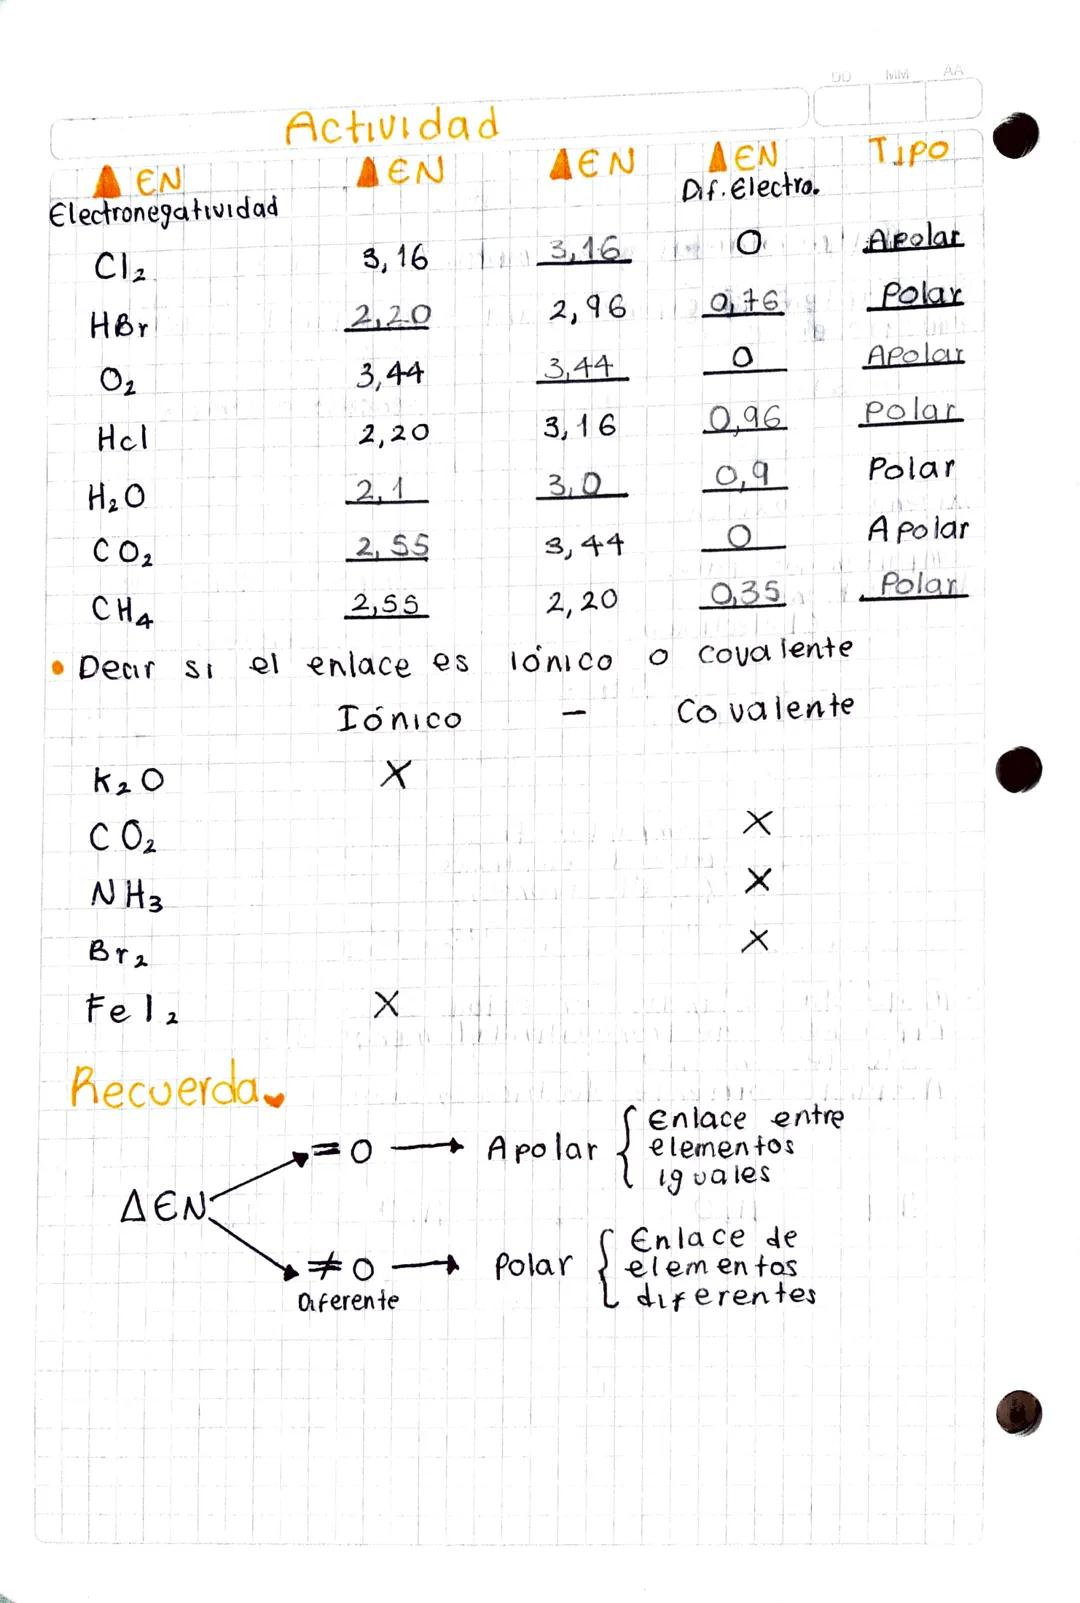 DD MM AA
Actividad
ΔEN ΔEN ΔEN ΔEN TIPO
Electronegatividad Dif. Electro.
Cl₂ 3,16 3,16 0 Apolar
HBr 2,20 2,96 0,76 Polar
O₂ 3,44 3,44 0 Apolar
Hcl 2,20 3,16 0,96 Polar
H₂O 2,1 3,0 0,9 Polar
CO₂ 2,55 3,44 0 Apolar
CH₄ 2,55 2,20 0,35 Polar
• Decir si el enlace es iónico o covalente
Iónico - Covalente
K₂O X
CO₂ X
NH₃ X
Br₂ X
FeI₂ X
Recuerda
ΔEN
=0 → Apolar { Enlace entre
elementos
iguales
≠0 → Polar { Enlace de
Diferente
elementos
diferentes